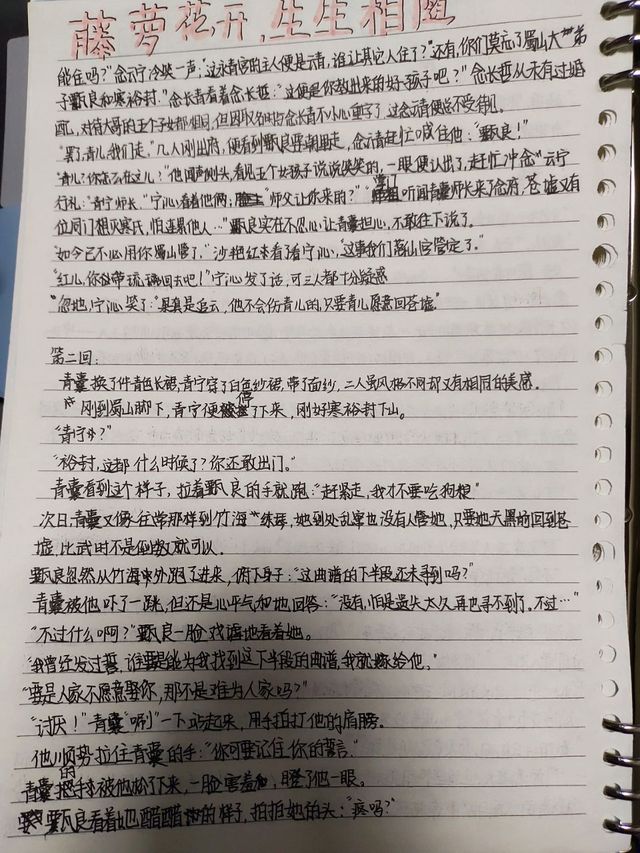 藤萝花开,生生相随
能住吗?"念云宁冷哭一声:"这永青宫的主人便是云青,谁让其它人住了?"还有,你们莫忘了蜀山大弟
子甄良和寒裕封."念长青看着念长哲:"这便是你教出来的好孩子吧?"念长哲从未有过婚
配,对待大哥的五个子女都相同,但因取名时与念长青不小心重了,这念清便总不受待见.
"罢了,青儿,我们走."几人刚出府,便看到甄良要朝里走,念清赶忙喊住他:"甄良!"
"青儿?你怎么在这儿?"他闻声侧头,看见五个女孩子说说笑笑的,一眼便认出了,赶忙冲念云宁
行礼:"青宁师长."宁沁看着他俩:"师父让你来的?""掌门听闻青囊师长来了念府,苍墟又有
位同门想灭寒氏,怕连累他人…"甄良实在不忍心让青囊担心,不敢往下说了.
"如今已不必用你蜀山管了."沙艳红看了看宁沁,"这事我们落仙宫管定了."
"红儿,你带琉璃回去吧!"宁沁发了话,可三人都十分疑惑
"忽地,宁沁笑了:"果真是追云,他不会伤青儿的,只要青儿愿意回苍墟."
第二回:
青囊换了件青色长裙,青宁穿了白色纱裙,带了面纱,二人虽风格不同却又有相同的美感.
刚到蜀山脚下,青宁便停了下来,刚好寒裕封下山.
"青宁?"
"裕封,这都什么时候了?你还敢出门."
青囊看到这个样子,拉着甄良的手就跑:"赶紧走,我才不要吃狗粮"
次日,青囊又像往常那样到竹海练琴,她到处乱窜也没有人管她,只要她天黑前回到苍
墟,比武时不是倒数就可以.
甄良忽然从竹海外跑了进来,俯下身子:"这曲谱的下半段还未寻到吗?"
青囊被他吓了一跳,但还是心平气和地回答:"没有,怕是遗失太久再也寻不到了.不过…"
"不过什么啊?"甄良一脸戏谑地看着她.
"我曾经发过誓,谁要是能为我找到这下半段的曲谱,我就嫁给他,"
"要是人家不愿意娶你,那不是难为人家吗?"
"讨厌!"青囊"唰"一下站起来,用手拍打他的肩膀.
他顺势拉住青囊的手:"你可要记住你的誓言."
青囊的手被他松了下来,一脸害羞,瞪了他一眼.
甄良看着她醋醋的样子,拍拍她的头:"疼吗?"